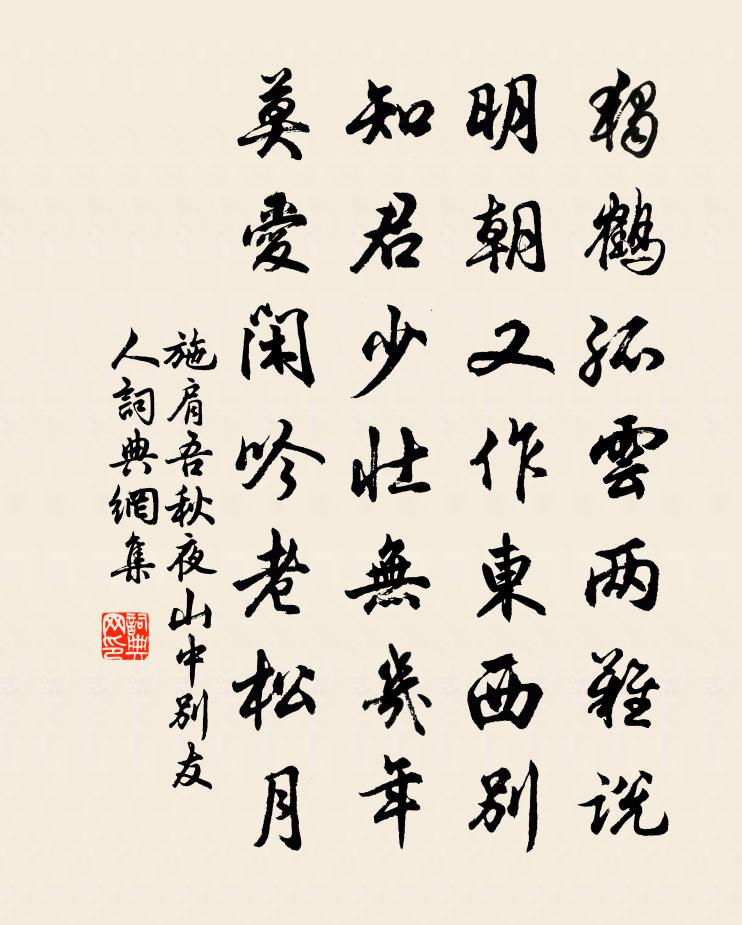 獨鶴孤雲两難説
明朝又作東西別
知君少壯無幾年
莫愛閑吟老松月
施肩吾秋夜山中別友
人詞典網集
詞典
网印